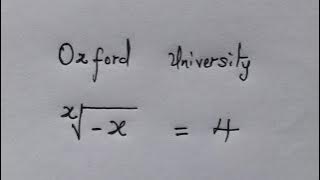 Oxford University
ˣ√-x = 4